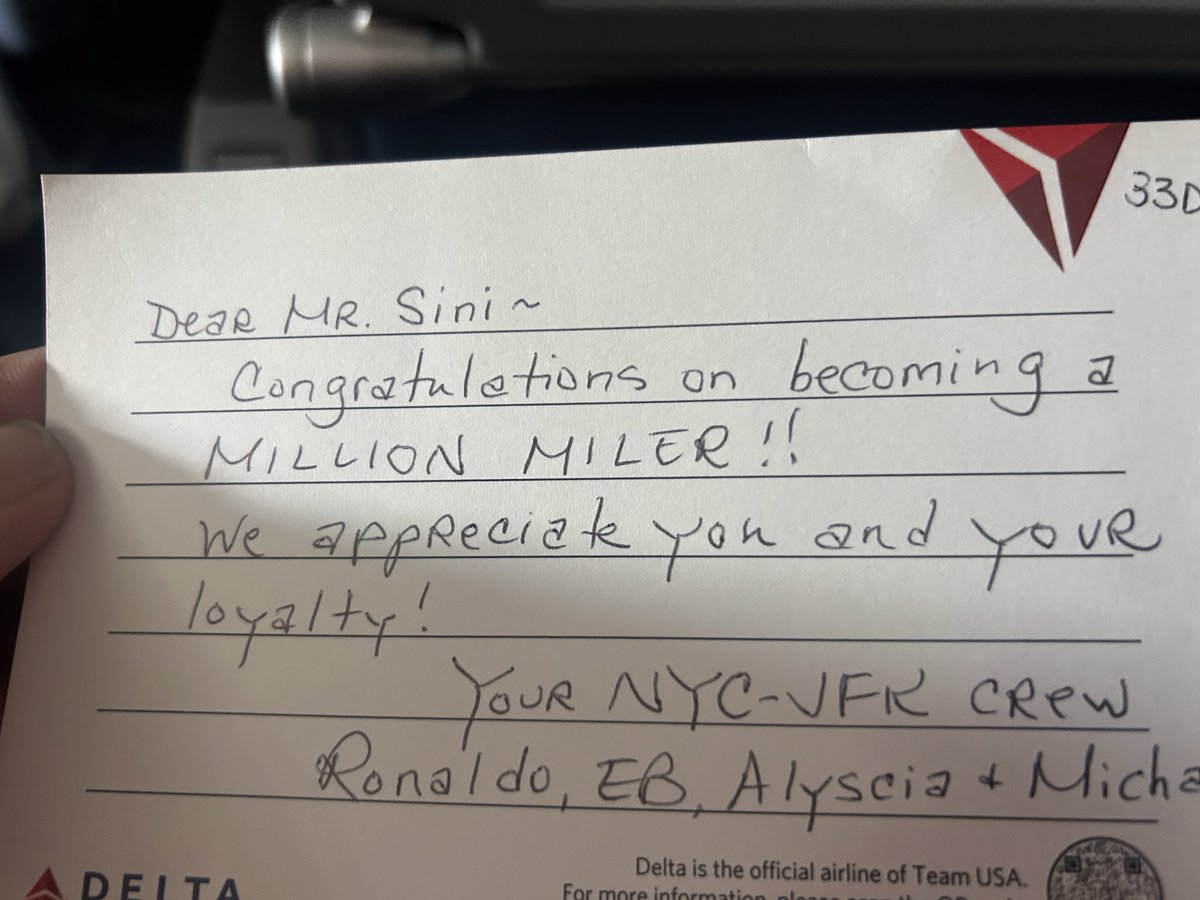 33D
Dear MR. Sini ~
Congratulations on becoming a
MILLION MILER!!
We appreciate you and your
loyalty!
Your NYC-JFK crew
Ronaldo, EB, Alyscia + Micha
DELTA
Delta is the official airline of Team USA.
For more information, please scan the QR